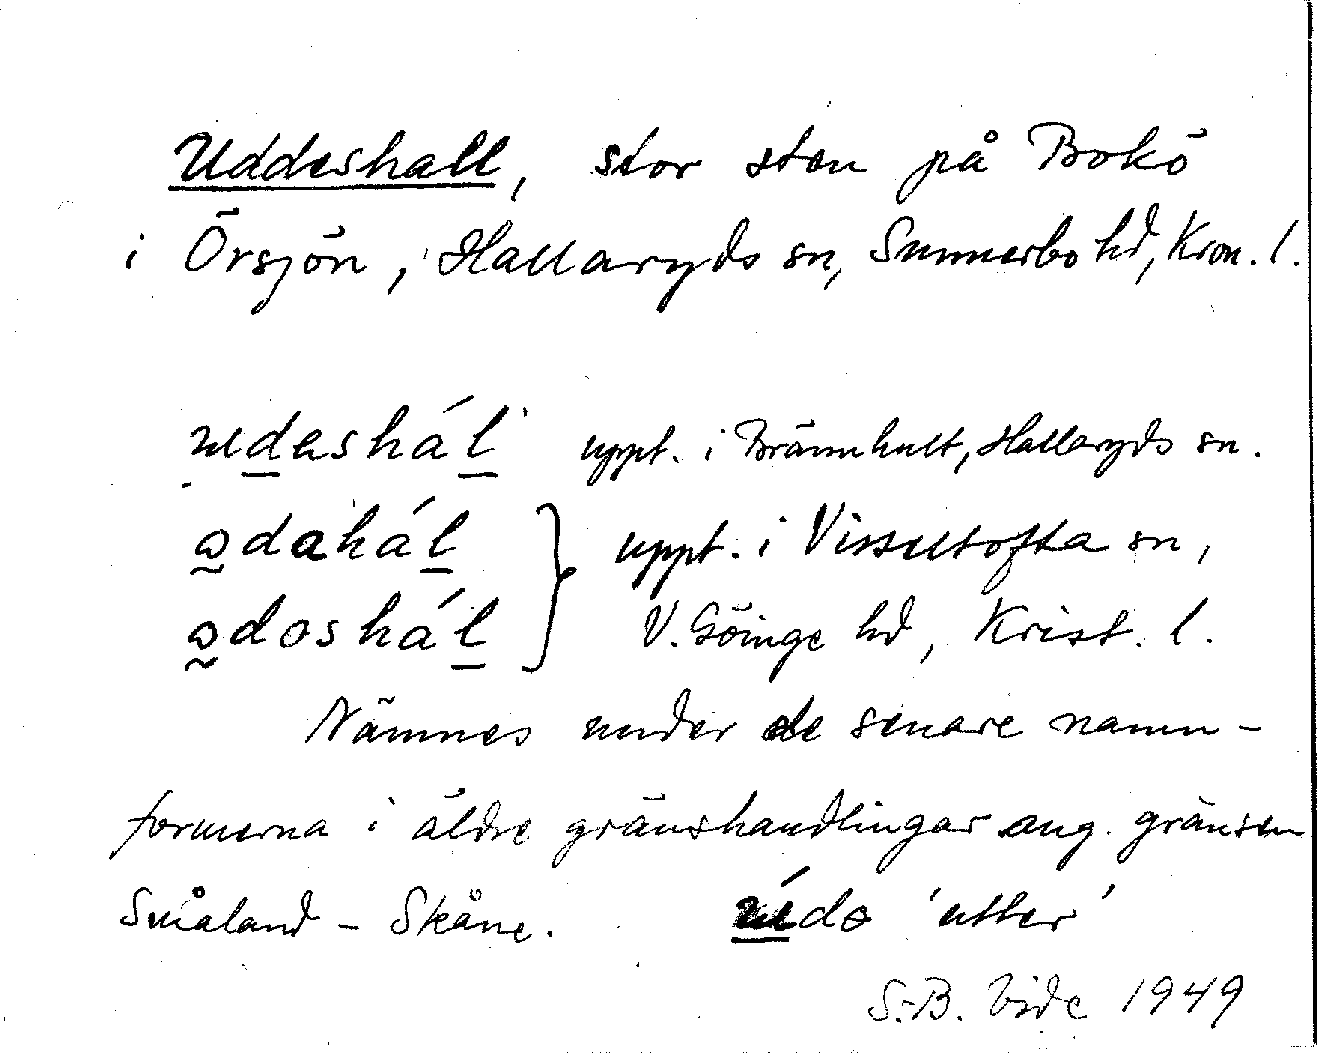 Uddeshall, stor sten på Bokö
i Örsjön, Hallaryds sn, Sunnerbo hd, Kron. l.
udeshál uppt. i Brännhult, Hallaryds sn.
ədahál } uppt. i Visseltofta sn,
ədoshál V. Göinge hd, Krist. l.
Nämnes under de senare namn-
formerna i äldre gränshandlingar ang. gränsen
Småland - Skåne. údə 'utter'
S.-B. Vide 1949